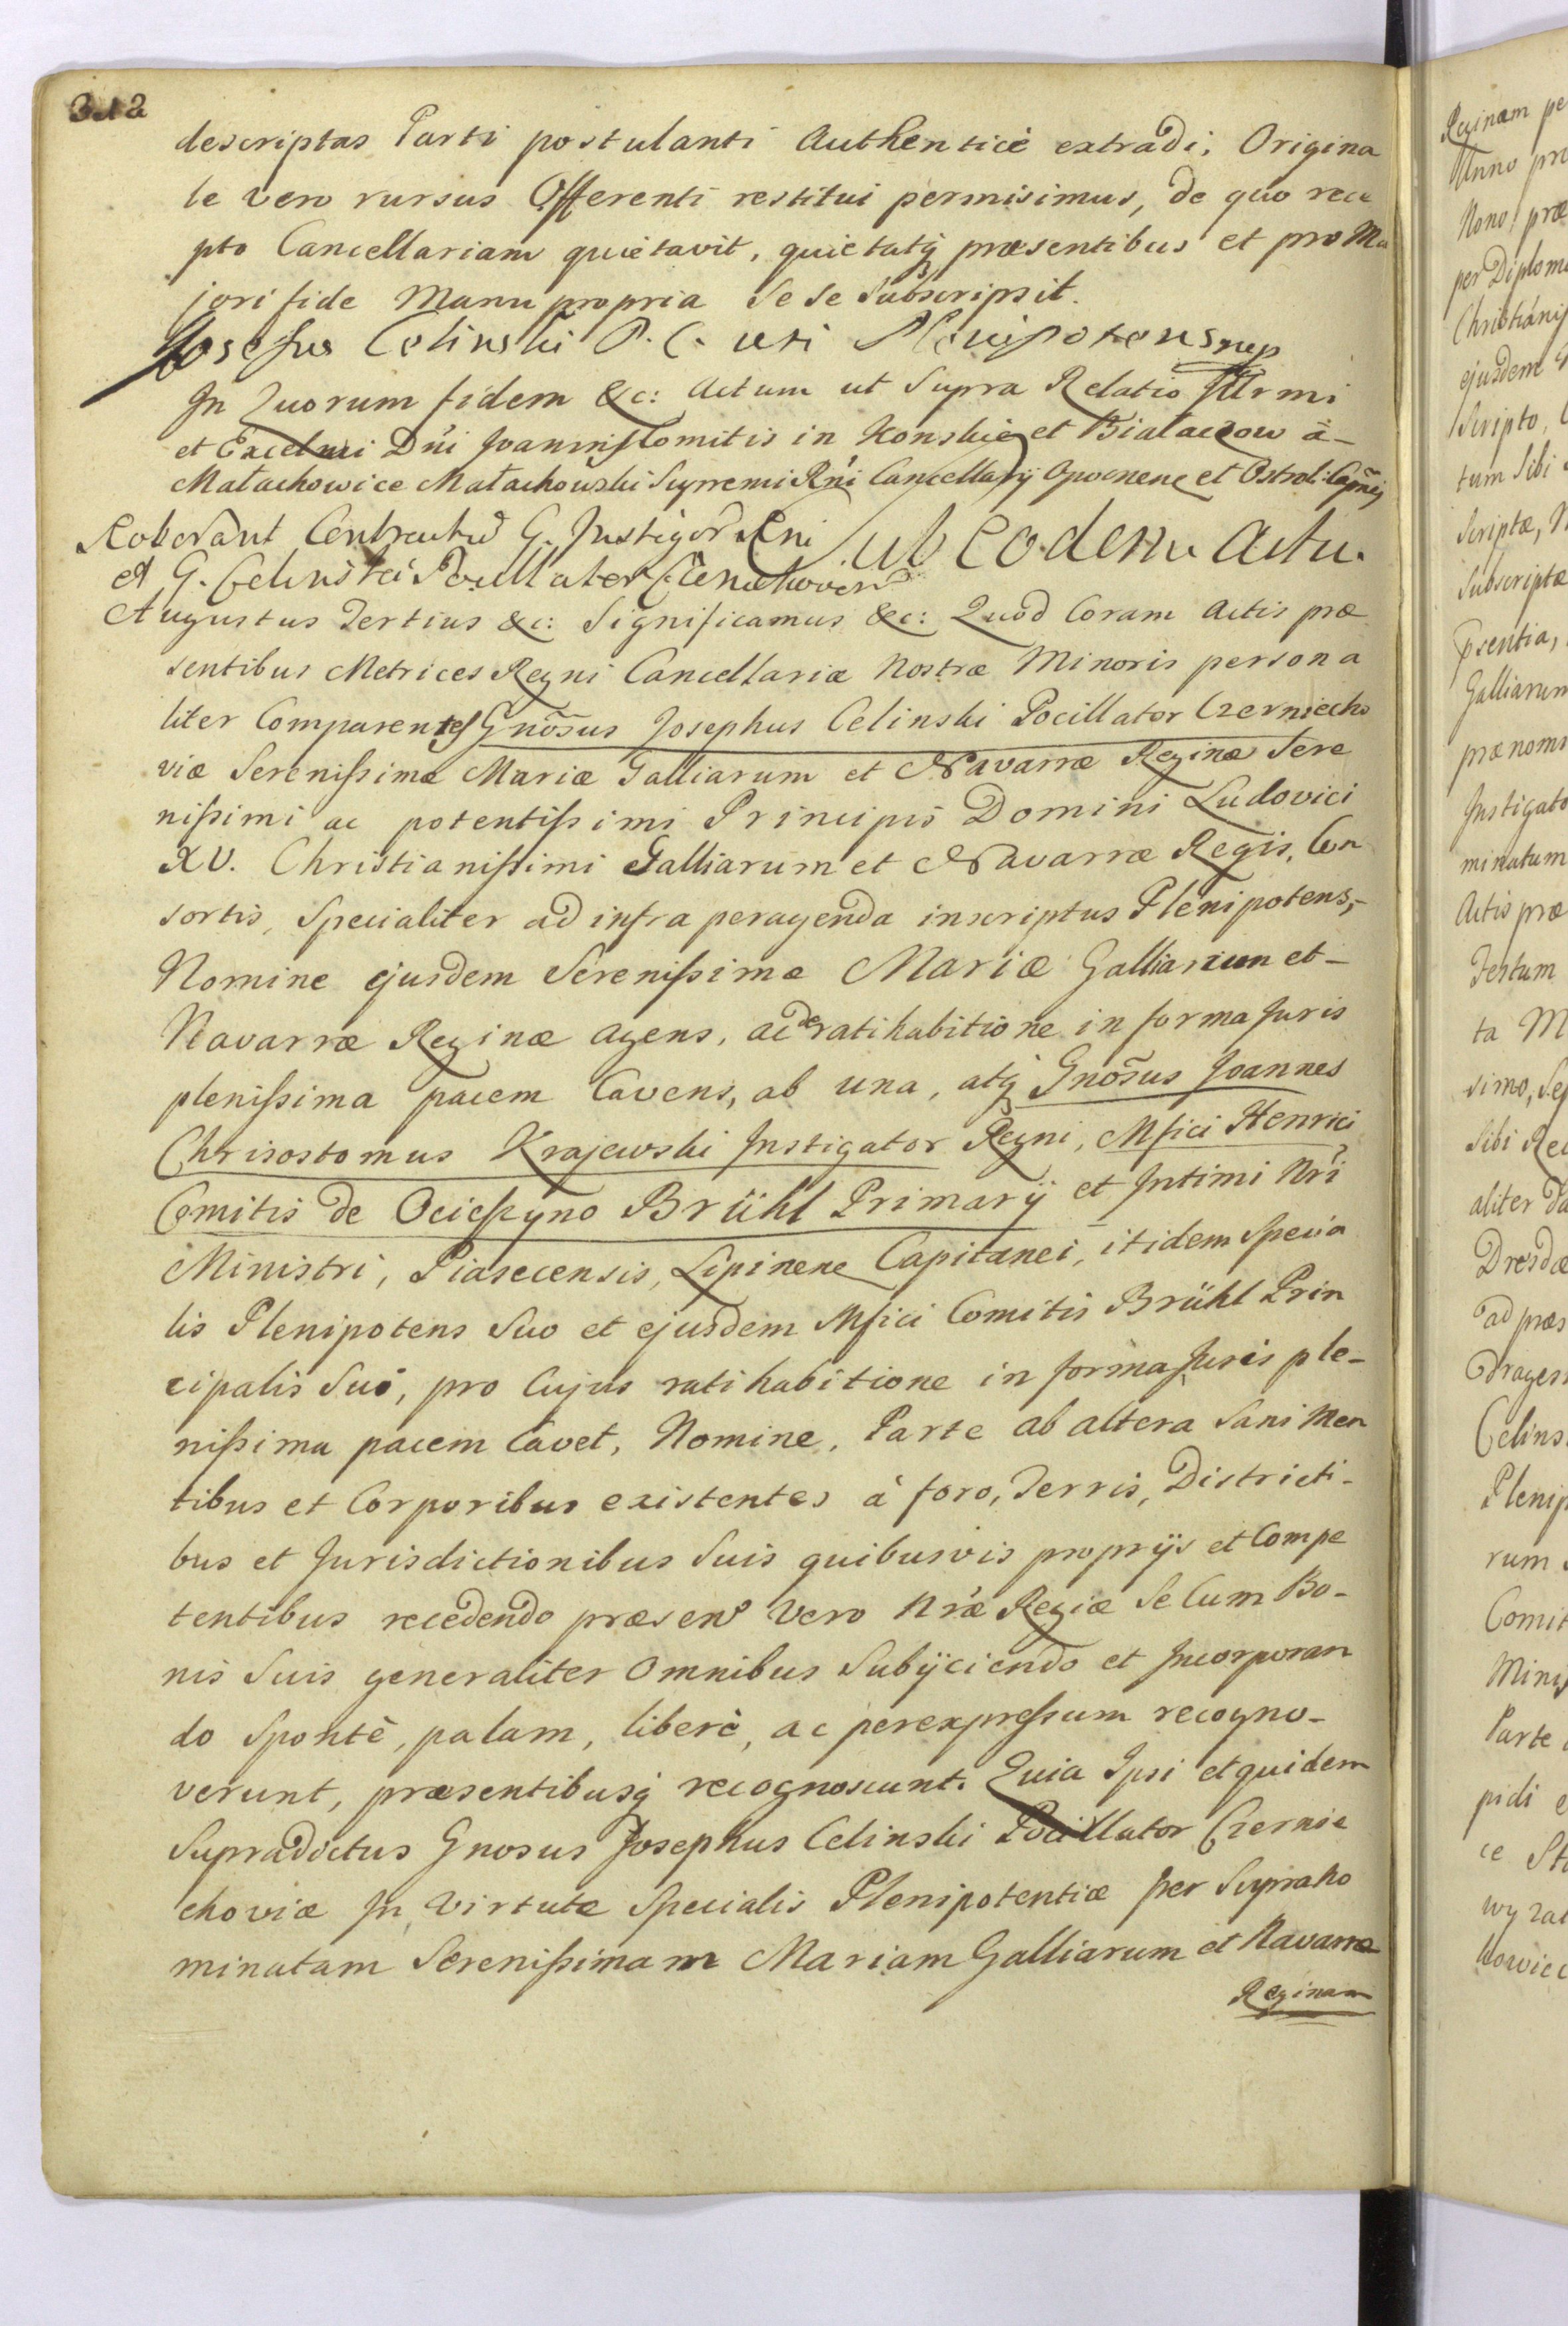 312
descriptas Parti postulanti Authenticè extradi; Origina
le vero rursus Offerenti restitui permisimus, de quo rece
pto Cancellariam quietavit, quietatq præsentibus et pro Ma
jori fide Manu propria Se Se Subscripsit.
Josefus Celinski P. C. uti Plenipotens mp
In Quorum fidem &c: Actum ut Supra Relatio Illrmi
et Excelmi Dni Joannis Comitis in Konskie et Bialaczow à-
Małachowice Małachowski Supremi Rni Cancellarij Opocnene et Ostroł: Capnei
Roborant Contractus G. Instigor Rni
et G. Celinski Pocillator Czerniechovien
Sub eodem Actu.
Augustus Tertius &c: Significamus &c: Quod Coram Actis præ
sentibus Metrices Regni Cancellariæ Nostræ Minoris persona
liter Comparentes Gnosus Josephus Celinski Pocillator Czerniecho
viæ Serenissimæ Mariæ Galliarum et Navarræ Reginæ Sere
nissimi ac potentissimi Principis Domini Ludovici
XV. Christianissimi Galliarum et Navarræ Regis, Con
sortis, Specialiter ad infra peragenda inscriptus Plenipotens,-
Nomine ejusdem Serenissimæ Mariæ Galliarum et-
Navarræ Reginæ agens, ac de ratihabitione in forma Juris
plenissima pacem Cavens, ab una, atq Gnosus Joannes
Chrisostomus Krajewski Instigator Regni, Mfici Henrici
Comitis de Ocieszyno Brühl Primarÿ et Intimi Nri
Ministri, Piasecensis, Lipinene Capitanei, itidem Specia
lis Plenipotens Suo et ejusdem Mfici Comitis Brühl Prin
cipalis Sui, pro Cujus ratihabitione in forma Juris ple-
nissima pacem Cavet, Nomine, Parte ab altera Sani Men
tibus et Corporibus existentes à foro, Terris, Districti-
bus et Jurisdictionibus Suis quibusvis proprÿs et Compe
tentibus recedendo præsen vero Nræ Regiæ Se Cum Bo-
nis Suis generaliter Omnibus Subÿciendo et Incorporan
do Spontè, palam, liberè, ac per expressum recogno-
verunt, præsentibusq recognoscunt. Quia Ipsi et quidem
Supradictus Gnosus Josephus Celinski Pocillator Czernie
choviæ In Virtute Specialis Plenipotentiæ per Suprano
minatam Serenissimam Mariam Galliarum et Navarræ
Reginam
Reginam pe
Anno pr
Nono præ
per Diplom
Christianis
ejusdem
Scripto,
tum Sibi
Scriptæ,
Subscriptæ
psentia,
Galliarum
prænomi
Instigato
minatum
Actis præ
Festum
ta M
simo, Sep
Sibi Re
aliter Da
Dresdæ
ad præs
Celins
Plenip
rum
Comit
Minis
Parte
pidi
ce St
wyzat
kowice